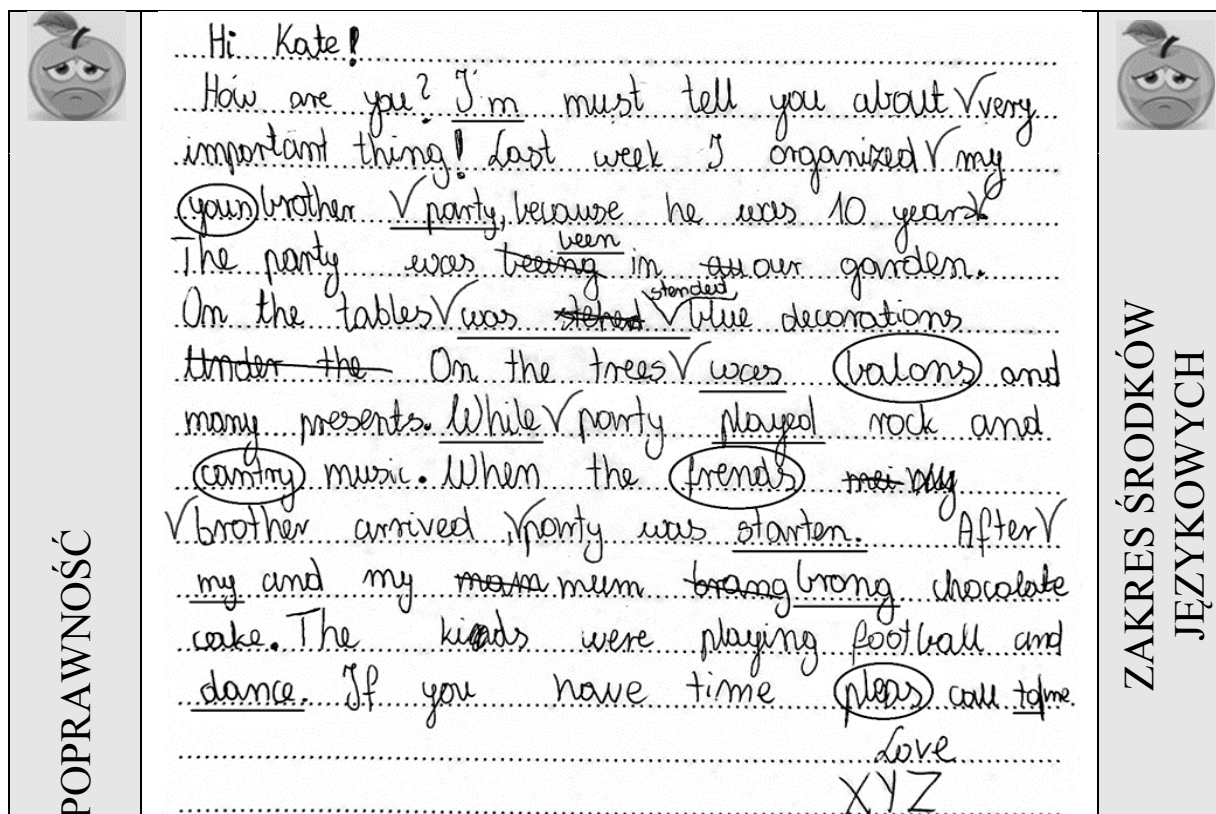 Hi Kate!
How are you? I'm must tell you about √ very
important thing! Last week I organized √ my
youn brother √ party, because he was 10 years √
The party was been in our garden.
On the tables √ was stended √ blue decorations
Under the On the trees √ was balons and
many presents. While √ party played rock and
cantry music. When the frends my
√ brother arrived, √ party was starten. After √
my and my mum brong chocolate
cake. The kids were playing football and
dance. If you have time pleas call to me.
Love
XYZ
POPRAWNOŚĆ
ZAKRES ŚRODKÓW
JĘZYKOWYCH